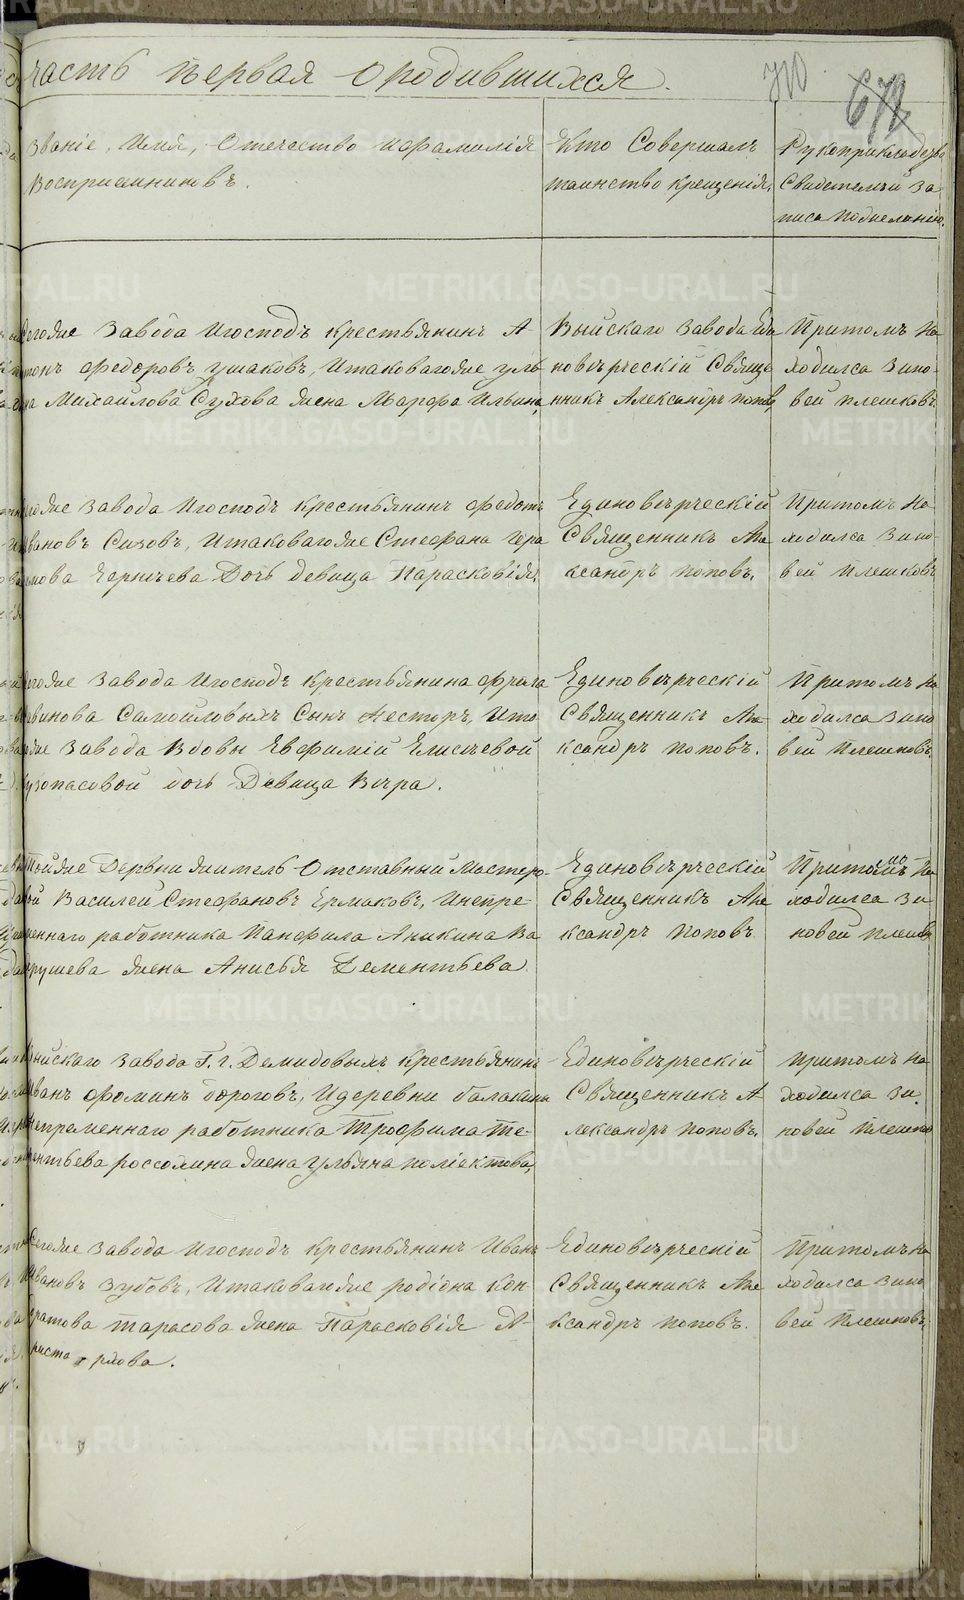 часть первая о родившихся.
710
672
Званіе, Имя, Отечество и фамилія
Воспріемниковъ.
Кто Совершалъ
таинство крещенія,
Рукоприкладство
Свидетелей за
писи по желанію.
Сегоже Завода Игосподъ крестьянинъ А-
тонъ федоровъ Ушаковъ, Итаковагоже улья
на Михаилова Сухова жена Марфа Ильина,
Выйскаго Завода Еди
новѣрческій Свяще
нникъ Александръ поповъ,
Притомъ на
ходился Зино-
вей плешковъ
Завода Игосподъ крестьянинъ федотъ
Ивановъ Сизовъ, Итаковагоже Стефана Гера
симова Дочь девица Парасковія,
Единовѣрческій
Священникъ Але
ксандръ поповъ,
Притомъ на
ходился Зино-
вей Плешковъ
Завода Игосподъ крестьянина
Самойловымъ Сынъ Несторъ, Ито
гоже Завода Вдовы Евфимій Елисѣевой
дочь Девица Вѣра.
Единовѣрческій
Священникъ Але-
ксандръ поповъ.
Притомъ на
ходился Зино
вей Плешковъ,
Тойже Деревни житель Отставный Мастеро-
вой Василей Стефановъ Ермаковъ, Инепре-
меннаго работника Панфила Аникина Ва
хрушева жена Анисья Дементьева
Единовѣрческій
Священникъ Але
ксандръ поповъ
Притомъ на
ходился Зи
новей плешковъ
Выйскаго Завода Г. г. Демидовымъ крестьянинъ
Иванъ фоминъ Идеревни балакина
Непременнаго работника Трофима Те-
рентьева россомина жена Ульяна поліектова,
Единовѣрческій
Священникъ А
лександръ поповъ,
притомъ на
ходился Зи.
новей Плешковъ
Сегоже Завода Игосподъ Крестьянинъ Иванъ
Ивановъ Зубовъ, Итаковагоже родіона кон-
дратова тарасова жена Парасковія А-
ристархова.
Единовѣрческій
Священникъ Але
ксандръ поповъ.
Притомъ на
ходился Зино
вей Плешковъ,
METRIKI.GASO-URAL.RU